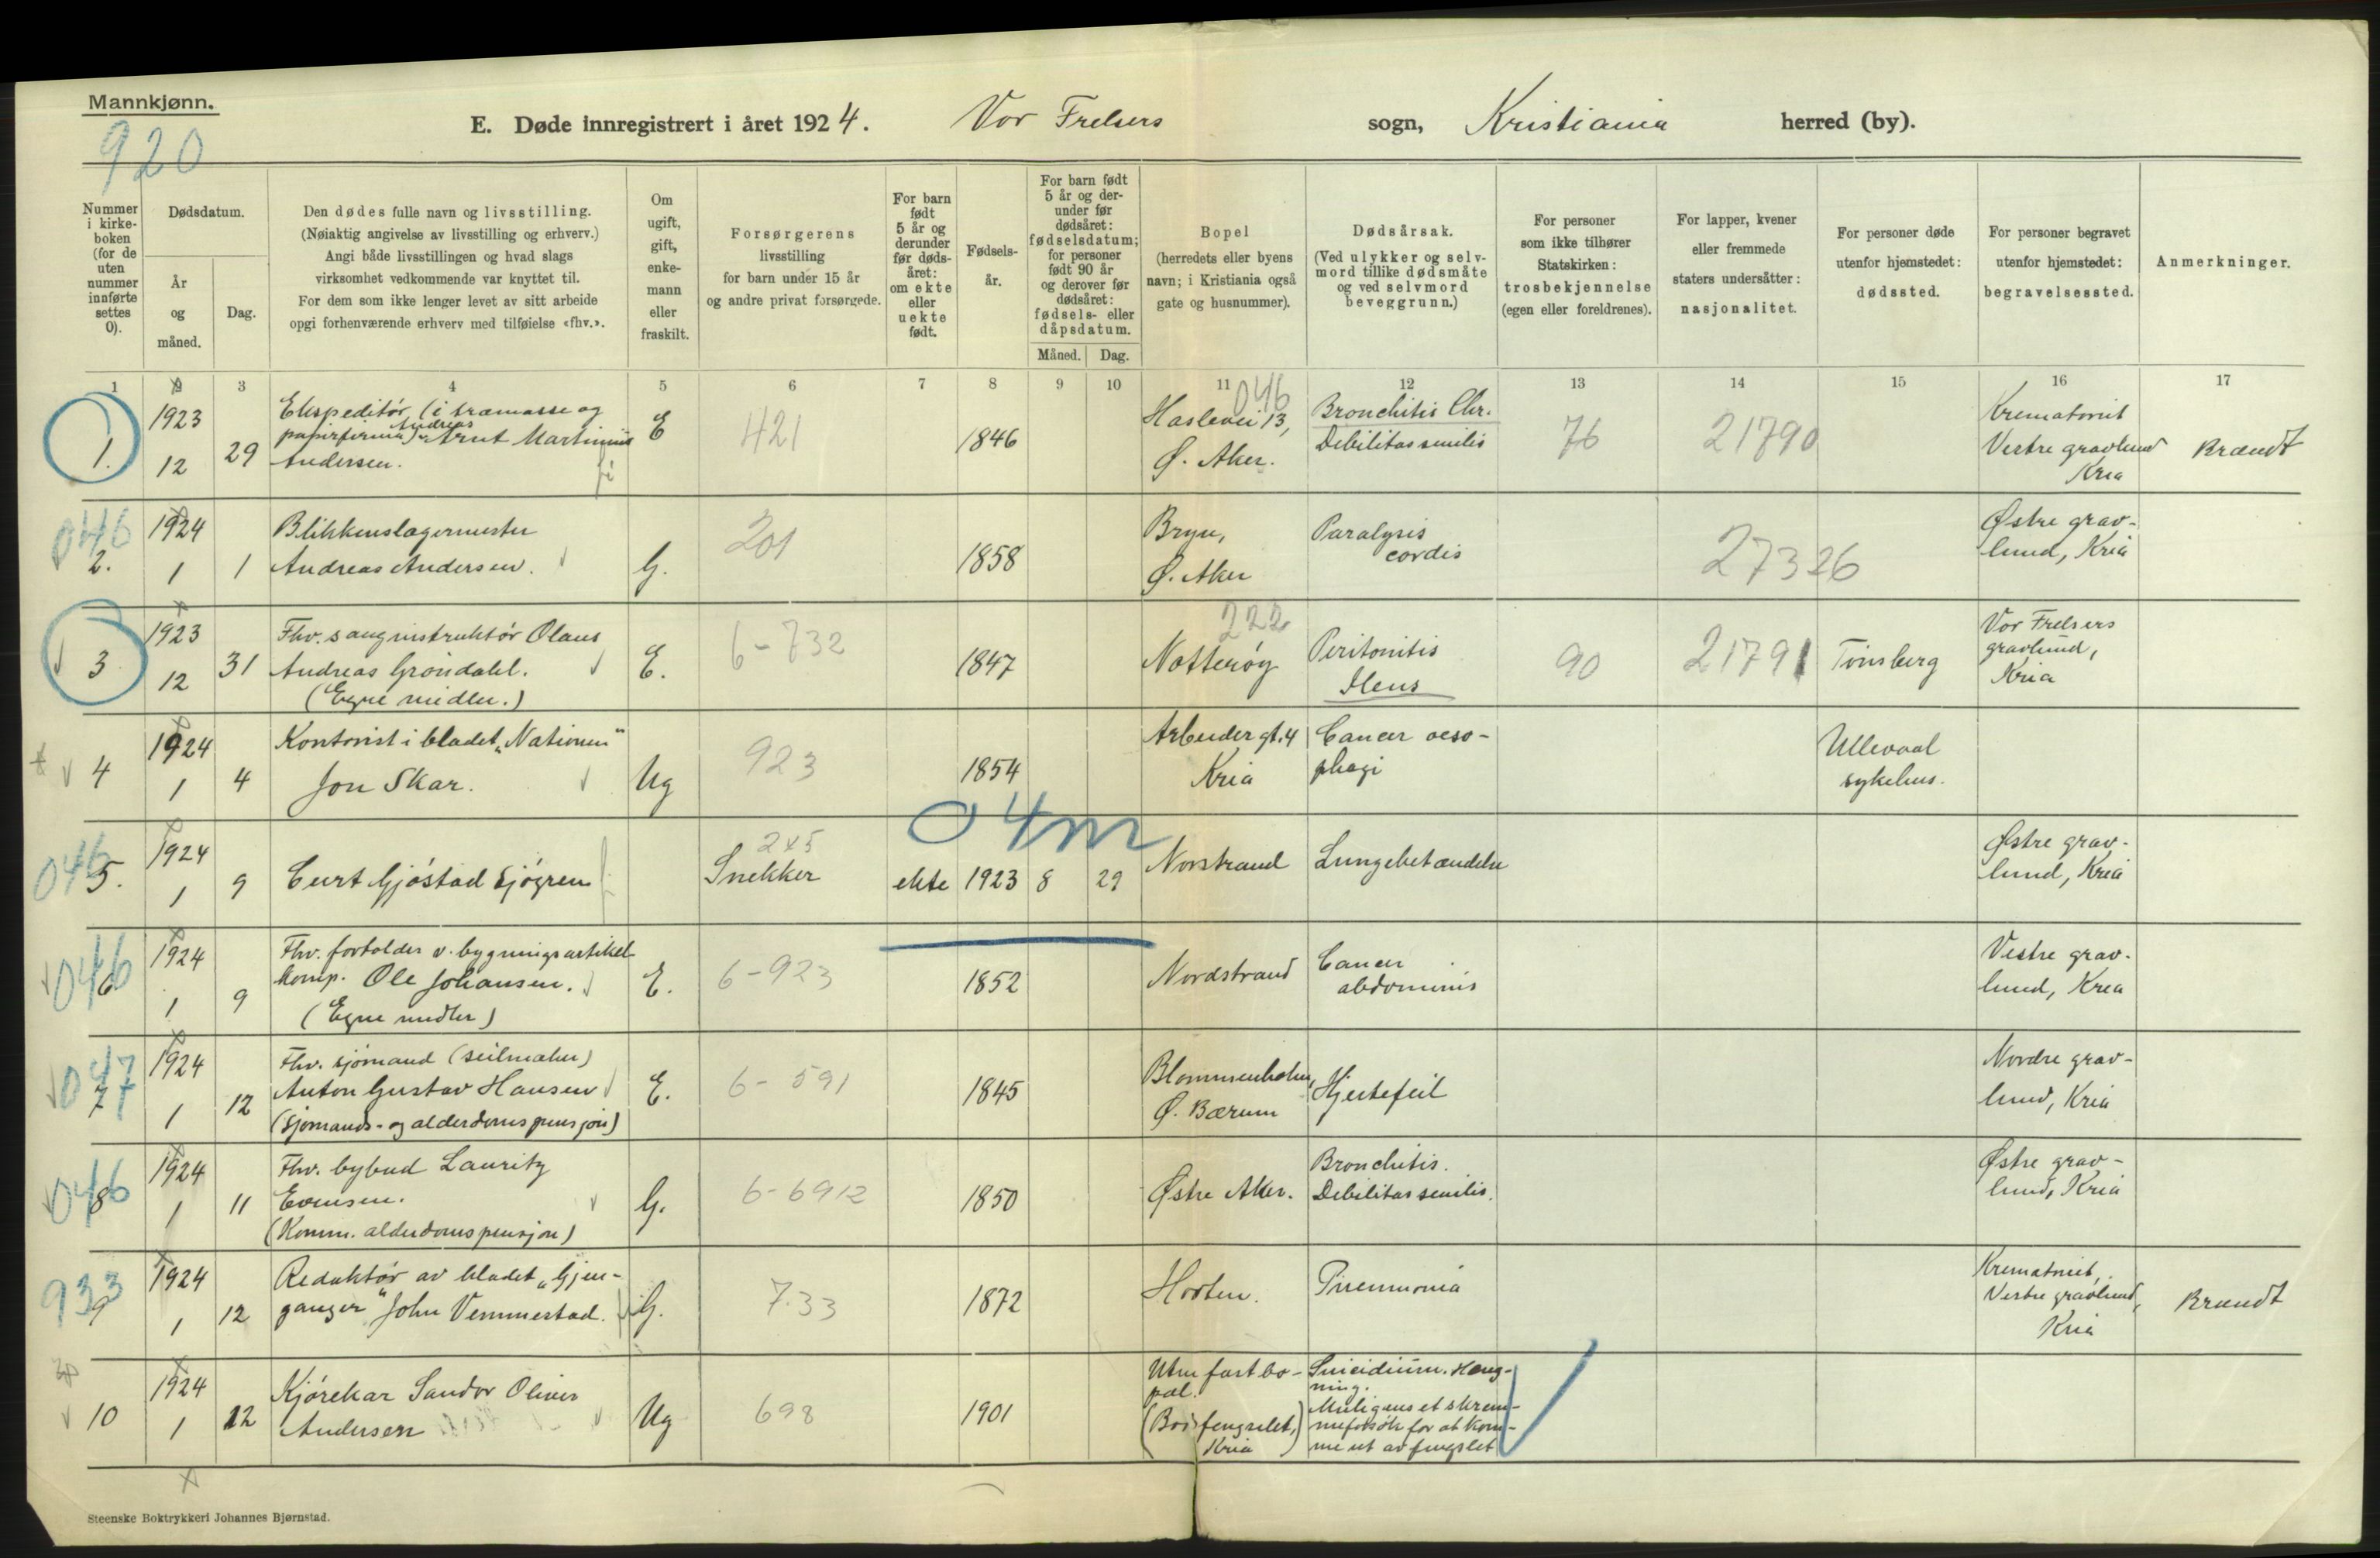 Mannkjønn.
920
E. Døde innregistrert i året 1924. Vor Frelsers sogn, Kristiania herred (by).
Nummer i kirke-boken (for de uten nummer innførte settes 0).
Dødsdatum.
År og måned.
Dag.
Den dødes fulle navn og livsstilling.
(Nøiaktig angivelse av livsstilling og erhverv.)
Angi både livsstillingen og hvad slags
virksomhet vedkommende var knyttet til.
For dem som ikke lenger levet av sitt arbeide
opgi forhenværende erhverv med tilføielse «fhv.».
Om ugift, gift, enke-mann eller fraskilt.
Forsørgerens
livsstilling
for barn under 15 år
og andre privat forsørgede.
For barn født 5 år og derunder før døds-året: om ekte eller uekte født.
Fødsels-år.
For barn født 5 år og der-under før dødsåret: fødselsdatum; for personer født 90 år og derover før dødsåret: fødsels- eller dåpsdatum.
Måned. Dag.
Bopel
(herredets eller byens
navn; i Kristiania også
gate og husnummer).
Dødsårsak.
(Ved ulykker og selv-
mord tillike dødsmåte
og ved selvmord
beveggrunn.)
For personer
som ikke tilhører
Statskirken:
trosbekjennelse
(egen eller foreldrenes).
For lapper, kvener
eller fremmede
staters undersåtter:
nasjonalitet.
For personer døde
utenfor hjemstedet:
dødssted.
For personer begravet
utenfor hjemstedet:
begravelsessted.
Anmerkninger.
1 2 3 4 5 6 7 8 9 10 11 12 13 14 15 16 17
1. 1923 12 29
Ekspeditør (i træmasse og
papirfirma) Andreas Arnt Martinius
Andersen.
E 421 1846
046
Haslevei 13,
Ø. Aker.
Bronchitis Chr.
Debilitas senilis
76 21790
Krematoriet
Vestre gravlund
Kria
Brandt
046
2. 1924 1 1
Blikkenslagermester
Andreas Andersen.
G. 201 1858
Bryn,
Ø. Aker
Paralysis
cordis
27326
Østre grav-
lund, Kria
3 1923 12 31
Fhv. sanginstruktør Olaus
Andreas Grøndahl.
(Egne midler.)
E. 6-732 1847
222
Nøtterøy
Peritonitis
Ileus
90 21791
Tønsberg
Vor Frelsers
gravlund,
Kria
4 1924 1 4
Kontorist i bladet "Nationen"
Jon Skar.
Ug 923 1854
Arbeidergt. 4
Kria
Cancer oeso-
phagi
Ullevaal
sykehus.
046
5. 1924 1 9
Curt Gjøstad Sjøgren
245
Snekker
ekte 1923 8 29
04m
Norstrand
Lungebetændelse
Østre grav-
lund, Kria
046
6 1924 1 9
Fhv. forvalter v. bygningsartikel-
komp. Ole Johansen.
(Egne midler)
E. 6-923 1852
Nordstrand
Cancer
abdominis
Vestre grav-
lund, Kria
047
7 1924 1 12
Fhv. sjømand (seilmaker)
Anton Gustav Hansen
(Sjømands- og alderdomspensjon)
E. 6-591 1845
Blommenholm,
Ø. Bærum
Hjertefeil
Nordre grav-
lund, Kria
046
8 1924 1 11
Fhv. bybud Lauritz
Evensen.
(Komm. alderdomspensjon)
G. 6-6912 1850
Østre Aker.
Bronchitis.
Debilitas senilis.
Østre grav-
lund, Kria
933
9 1924 1 12
Redaktør av bladet "Gjen-
ganger" John Vemmestad.
G. 7.33 1872
Horten.
Pneumonia
Krematoriet,
Vestre gravlund,
Kria
Brandt
10 1924 1 12
Kjørekar Sandor Oliver
Andersen
Ug 698 1901
Uten fast bo-
pæl.
(Bodsfengselet,
Kria)
Suicidium. Hæng-
ning.
Muligens et skræm-
meforsøk for at kom-
me ut av fengslet
Steenske Boktrykkeri Johannes Bjørnstad.